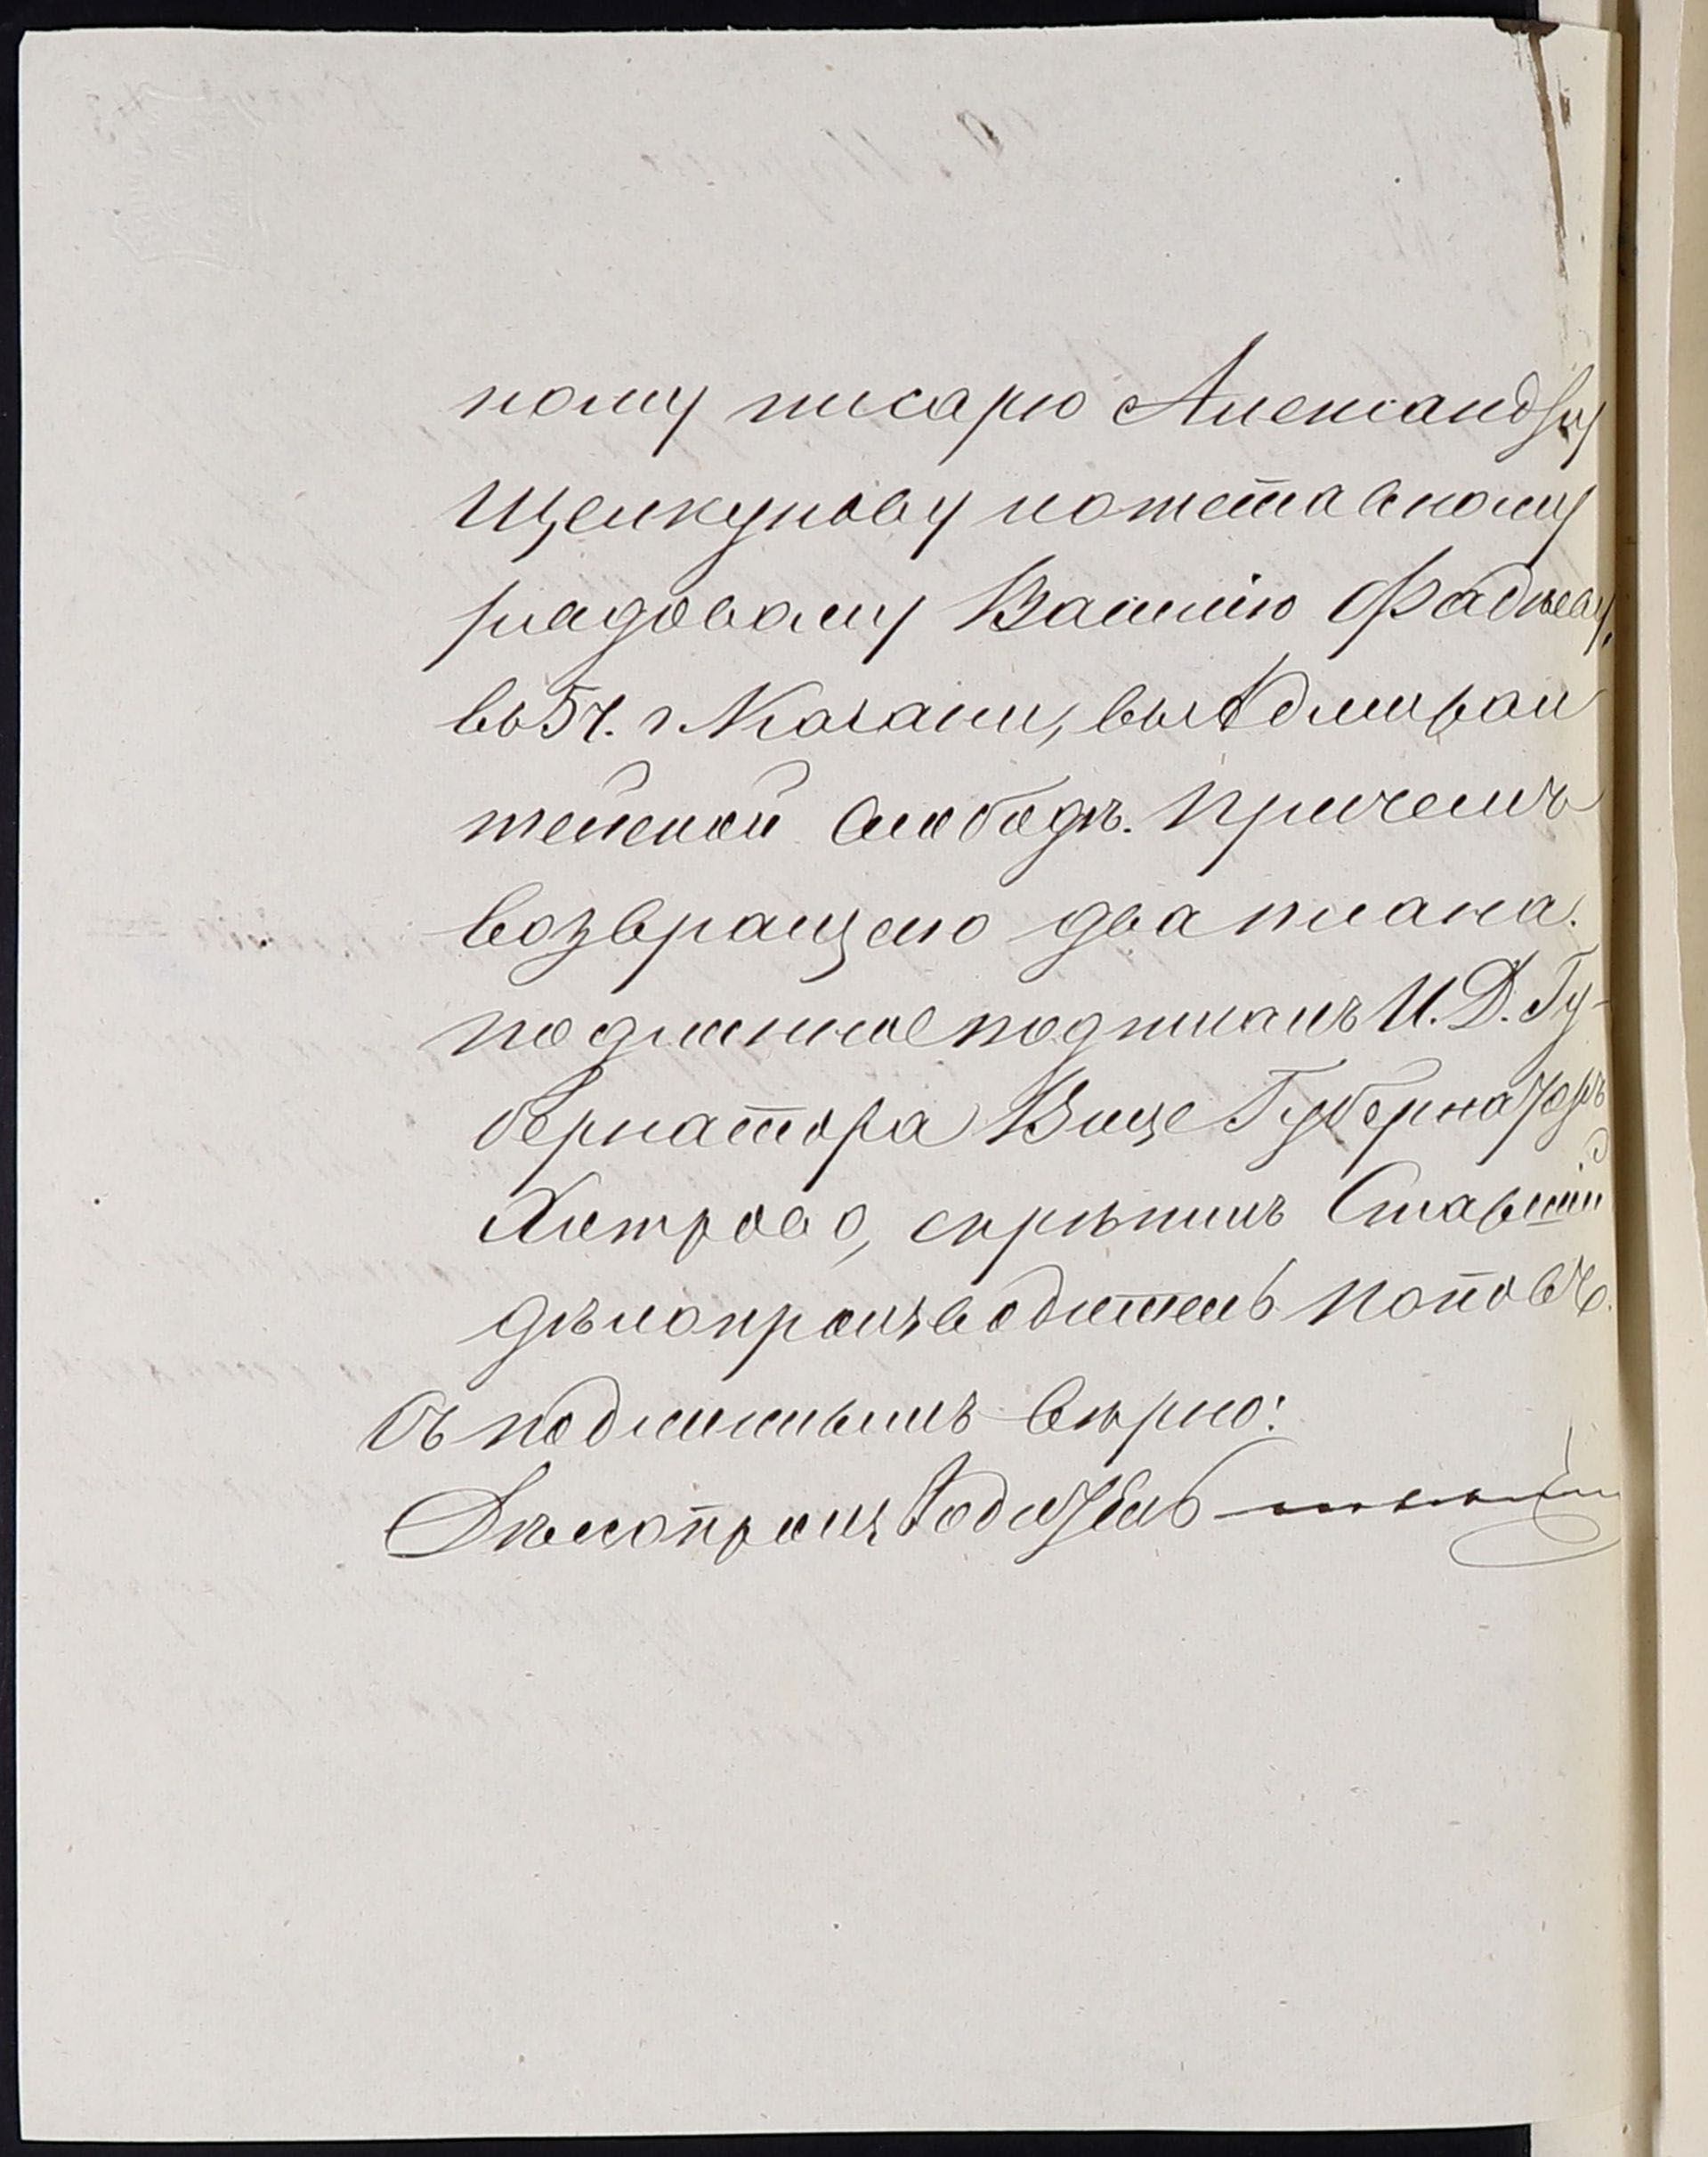 ному писарю Александру
Щелкунову и отставному
рядовому Василiю Фадѣеву,
въ 5 ч. г. Казани, въ Адмирал
тейской слободѣ. Причемъ
возвращено два плана.
Подлинное подписалъ И. Д. Гу-
бернатора Вице Губернаторъ
Хитрово, скрѣпилъ Старшiй
дѣлопроизводитель Поповъ.
Съ подлиннымъ вѣрно:
Дѣлопроизводитель